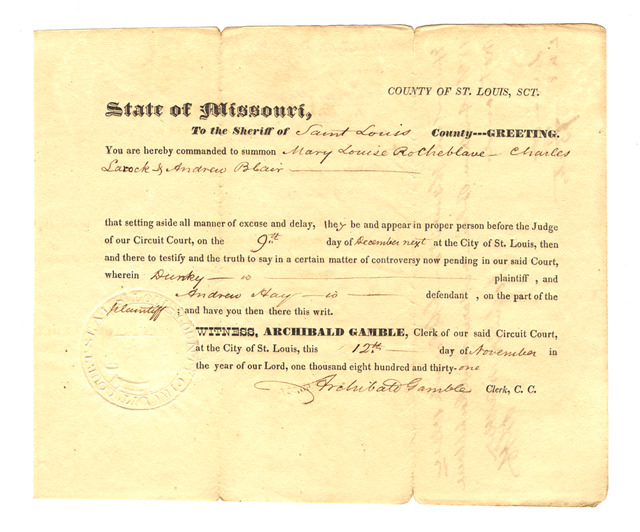 COUNTY OF ST. LOUIS, SCT.
State of Missouri,
To the Sheriff of Saint Louis County---GREETING.
You are hereby commanded to summon Mary Louise Rocheblave - Charles
Larock & Andrew Blair
that setting aside all manner of excuse and delay, they be and appear in proper person before the Judge
of our Circuit Court, on the 9th day of December next at the City of St. Louis, then
and there to testify and the truth to say in a certain matter of controversy now pending in our said Court,
wherein Dunky - is plaintiff , and
Andrew Hay - is - defendant , on the part of the
plaintiff ; and have you then there this writ.
WITNESS, ARCHIBALD GAMBLE, Clerk of our said Circuit Court,
at the City of St. Louis, this 12th day of November in
the year of our Lord, one thousand eight hundred and thirty-one
Archibald Gamble Clerk, C. C.